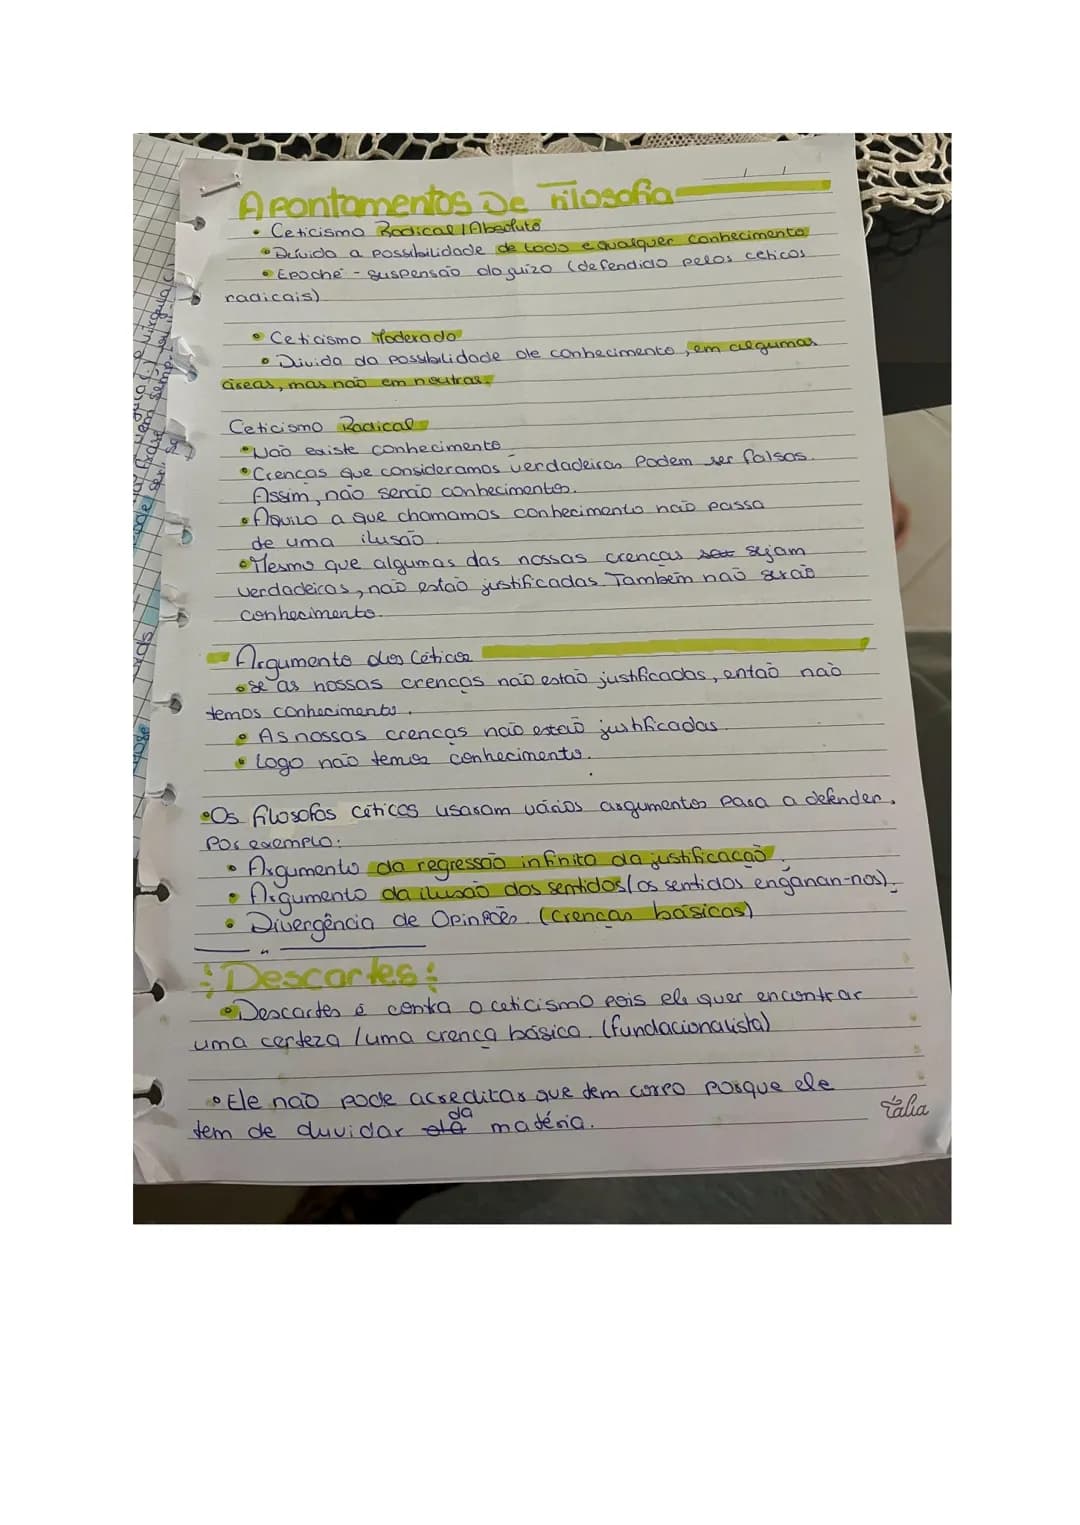 Apontamentos De Filosofia
• Ceticismo Radical / Absoluto
• Dúvida a possibilidade de todo e qualquer conhecimento
• Epoché - suspensão do guizo (defendido pelos ceticos
radicais)
• Ceticismo Moderado
• Divida da possibilidade de conhecimento, em algumas
áreas, mas não em noutras.
Ceticismo Radical
• Não existe conhecimento
• Crenças que consideramos verdadeiras Podem ser falsas.
Assim, não serão conhecimentos.
• Aquilo a que chamamos conhecimento não passa
de uma ilusão.
• Mesmo que algumas das nossas crenças sejam
verdadeiras, não estão justificadas. Também não serão
conhecimento.
Argumento dos Céticos
• Se as nossas crenças não estão justificadas, então não
temos conhecimento.
• As nossas crenças não estão justificadas.
• Logo não temos conhecimento.
• Os filosofos céticos usaram vários argumentos para a defender.
Por exemplo:
• Argumento da regressão infinita da justificação.
• Argumento da ilusão dos sentidos (os sentidos enganan-nos).
• Divergência de Opiniões. (crenças básicas)
Descartes:
• Descartes é contra o ceticismo pois ele quer encontrar
uma certeza / uma crença básica. (fundacionalista)
• Ele não pode acreditar que tem corpo porque ele
tem de duvidar da matéria.
Talia